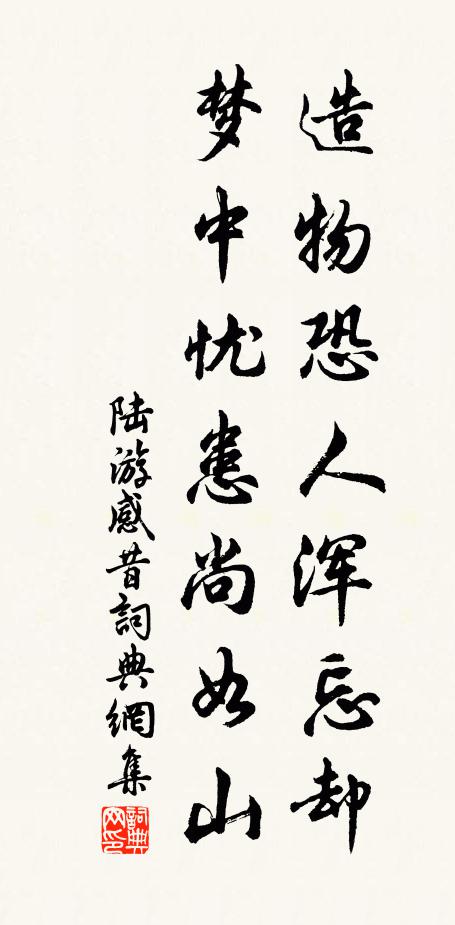 造物恐人浑忘却
梦中忧患尚如山
陆游感昔詞典網集
詞典网印